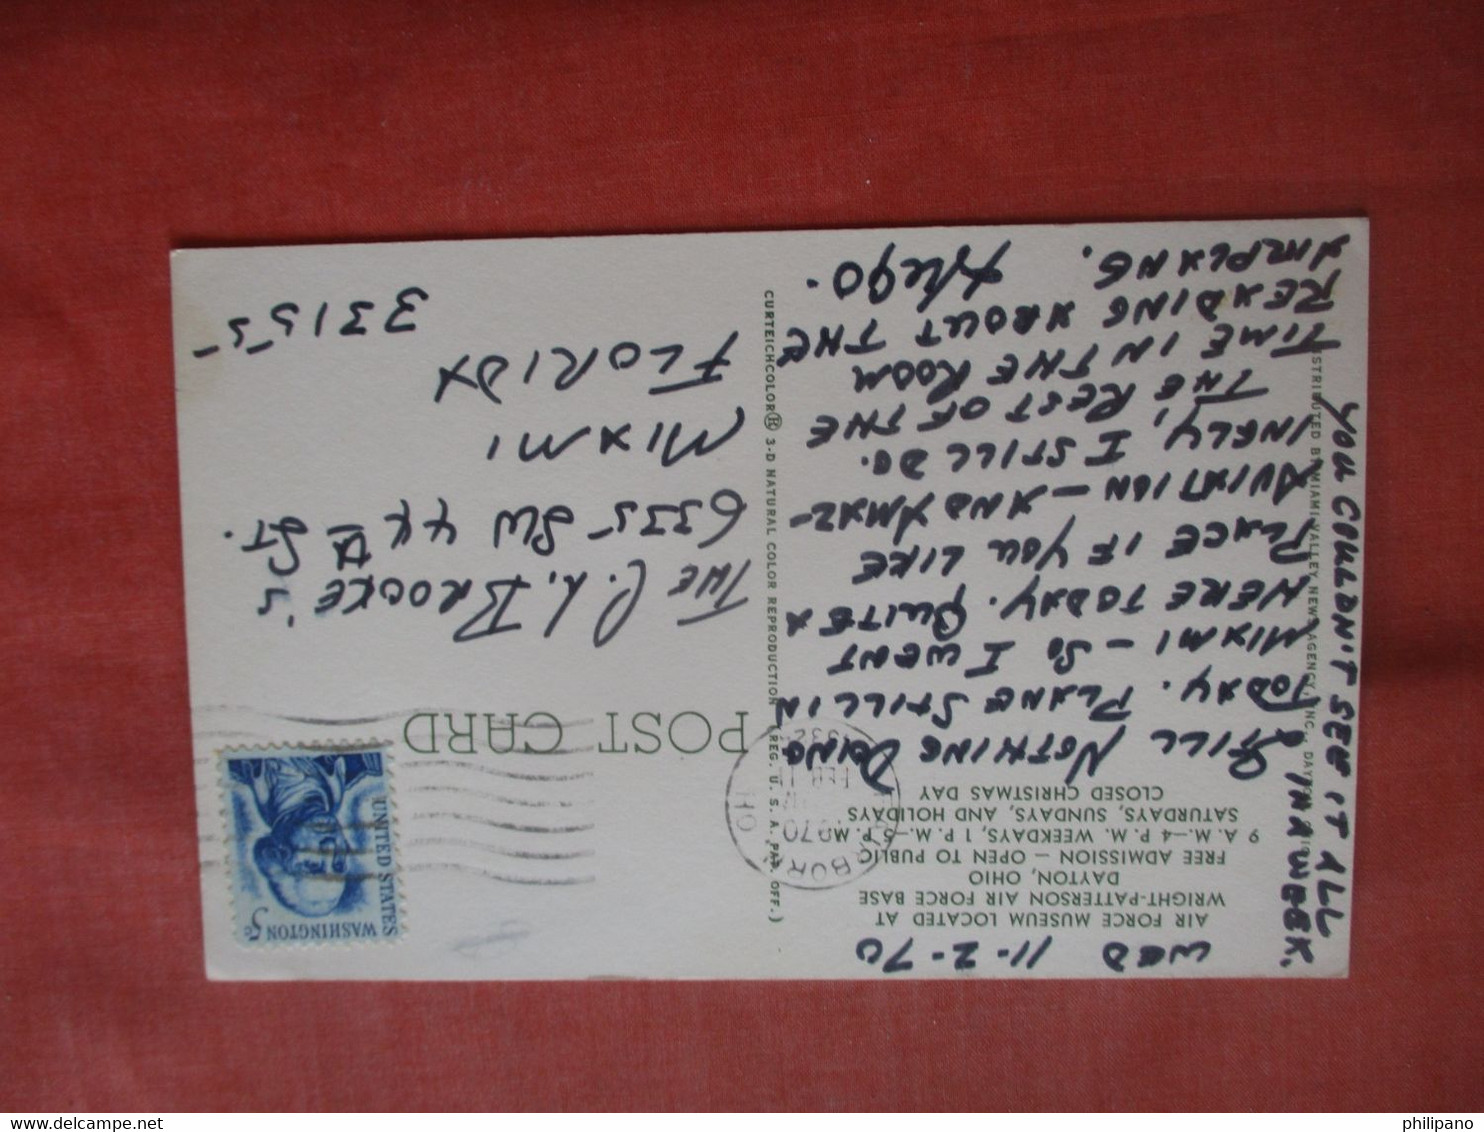 WED 11-2-70
AIR FORCE MUSEUM LOCATED AT
WRIGHT-PATTERSON AIR FORCE BASE
DAYTON, OHIO
FREE ADMISSION — OPEN TO PUBLIC
9 A.M.—4 P.M. WEEKDAYS, 1 P.M.—5 P.M.
SATURDAYS, SUNDAYS, AND HOLIDAYS
CLOSED CHRISTMAS DAY
STILL NOTHING DOING
TODAY. PLANE STILL IN
MIAMI — SO I WENT
HERE TODAY. QUITE A
PLACE IF YOU LIKE
AVIATION — AND AMAZ-
INGLY, I STILL DO.
THE REST OF THE
TIME IN THE ROOM
READING ABOUT THE
AIRPLANE.
Hugo.
YOU COULDN'T SEE IT ALL
IN A WEEK.
STRIBUTED BY MIAMI VALLEY NEWS AGENCY, INC., DAYTON
CURTEICHCOLOR® 3-D NATURAL COLOR REPRODUCTION (REG. U.S.A. PAT. OFF.)
POST CARD
FEB 11
1970
UNITED STATES
WASHINGTON 5c
THE C. L. BROOKE'S
6335 SW 44 ST.
MIAMI
FLORIDA
33155
philipano